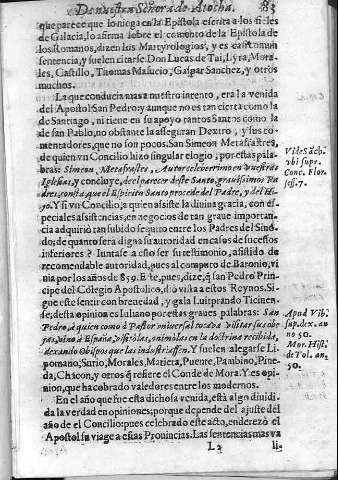 De nuestra Señora de Atocha. 83
que parece que lo niega en la Epistola escrita a los fieles
de Galacia, lo afirma sobre el comento de la Epistola de
los Romanos, dizen los Martyrologios, y es casi comun
sentencia, y suelen citarse Don Lucas de Tui, Lyra, Mora-
les, Castillo, Thomas Masucio, Gaspar Sanchez, y otros
muchos.
La que conducia mas nuestro intento, era la venida
del Apostol San Pedro; y aunque no es tan cierta como la
de Santiago, ni tiene en su apoyo tantos Santos como la
de san Pablo, no obstante la asseguran Dextro, y sus co-
mentadores, que no son pocos. San Simeon Metafrastres,
de quien vn Concilio hizo singular elogio, por estas pala-
bras: Simeon, Metafrastes, Autor celeverrimo en vuestras
Iglesias, y concluye, de el parecer deste Santo, grauissimos Pa-
dres, consta, que el Espiritu Santo procede del Padre, y del Hi-
jo. Y si vn Concilio, a quien assiste la diuina gracia, con es-
peciales assistencias, en negocios de tan graue importan-
cia adquiriò tan subido sequito entre los Padres del Sino-
do; de quanto serà digna su autoridad en casos de sucessos
inferiores? Iuntase a esto ser su testimonio, assistido de
recomendable autoridad, pues al computo de Baronio, vi-
nia por los años de 859. Este, pues, dize, que san Pedro Prin-
cipe del Colegio Apostolico, diò vista a estos Reynos. Si-
gue este sentir con breuedad, y gala Luitprando Ticinen-
se; desta opinion es Iuliano por estas graues palabras: San
Pedro, à quien como à Pastor vniuersal tocaua visitar sus obe-
jas, vino à España, visitólas, animólas en la doctrina recibida,
dexando Obispos que las industriassen. Y suelen alegarse Li-
pomano, Surio, Morales, Marieta, Puente, Paubino, Pine-
da, Chacon, y otros que refiere el Conde de Mora. Y es opi-
nion, que ha cobrado valedores entre los modernos.
En el año que fue esta dichosa venida, està algo diuidi-
da la verdad en opiniones; porque depende del ajuste del
año de el Concilio: pues celebrado este acto, enderezò el
Apostol su viage a estas Prouincias. Las sentencias mas va
L 2 li-
Vide Sach.
vbi supr.
Conc. Flor.
ses. 7.
Apud Vib.
sup. dex. an
no 50.
Mor. Hist.
de Tol. an.
50.